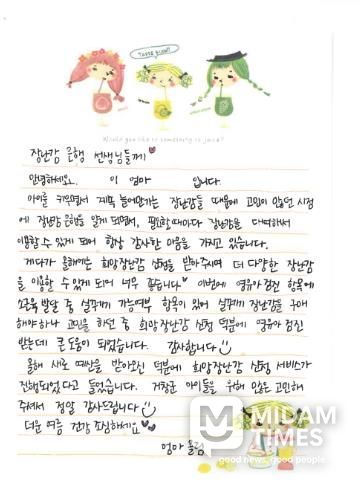 Taste good!
Would you like to something to juice?
장난감 은행 선생님들께
안녕하세요. 이 엄마 입니다.
아이를 키우면서 계속 늘어만가는 장난감들 때문에 고민이 많던 시점
에 장난감 은행을 알게 되면서, 필요할때마다 장난감을 대여해서
이용할 수 있게 되어 항상 감사한 마음을 가지고 있습니다.
게다가 올해에는 희망장난감 신청을 받아주시며 더 다양한 장난감
을 이용할 수 있게 되어 너무 좋습니다. 이번에 영유아검진 항목에
소근육 발달 중 실꿰기 가능여부 항목이 있어 실꿰기 장난감을 구매
해야하나 고민을 하던 중 희망장난감 신청 덕분에 영유아 검진
받는데 큰 도움이 되었습니다. 감사합니다
올해 새로 예산을 받아오신 덕분에 희망장난감 신청 서비스가
진행되었다고 들었습니다. 거창군 아이들을 위해 많은 고민해
주셔서 정말 감사드립니다
더운 여름 건강 조심하세요
엄마 올림
MIDAM
TIMES
good news, good people